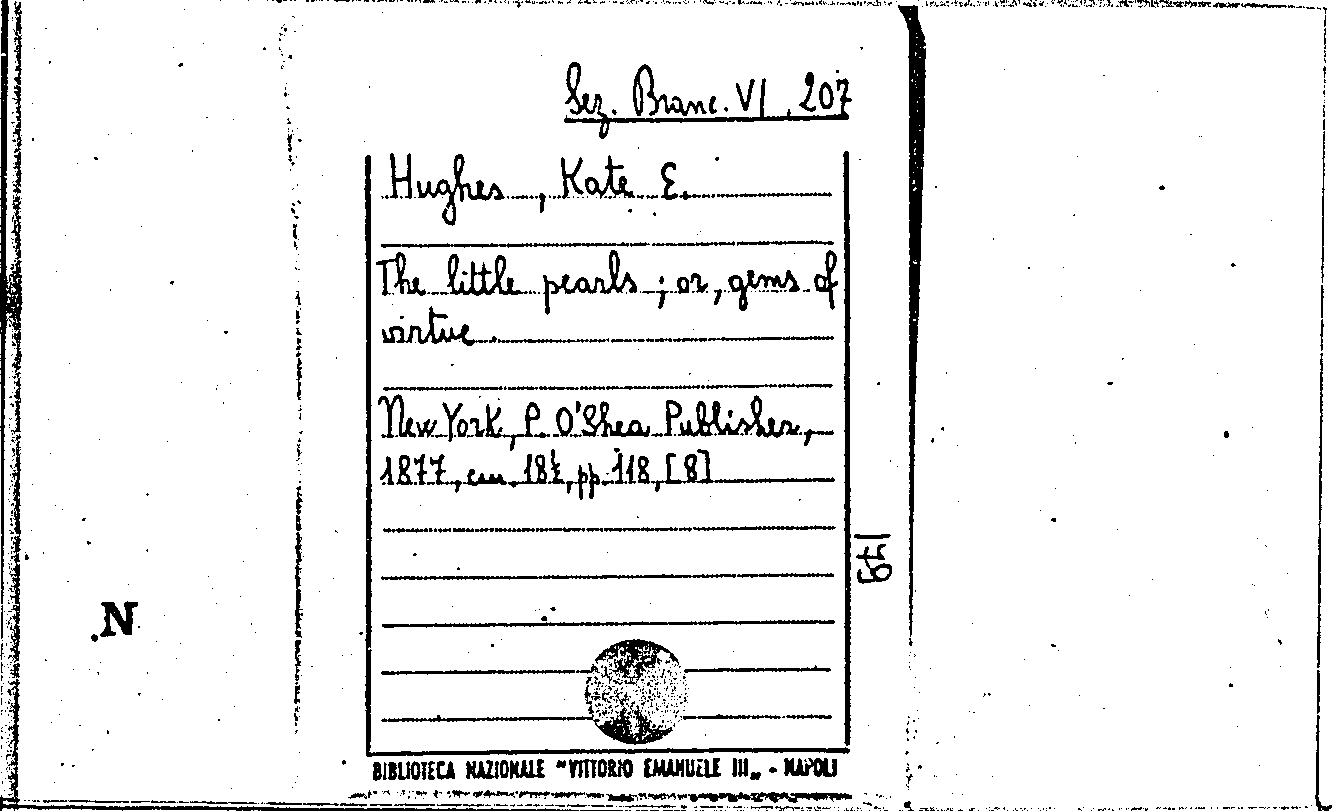 Sez. Branc. VI, 207
Hughes, Kate E.
The little pearls; or, gems of
virtue.
New York, P. O'Shea Publisher,
1877, cm. 18½, pp. 118, [8]
179
N
BIBLIOTECA NAZIONALE "VITTORIO EMANUELE III„ - NAPOLI